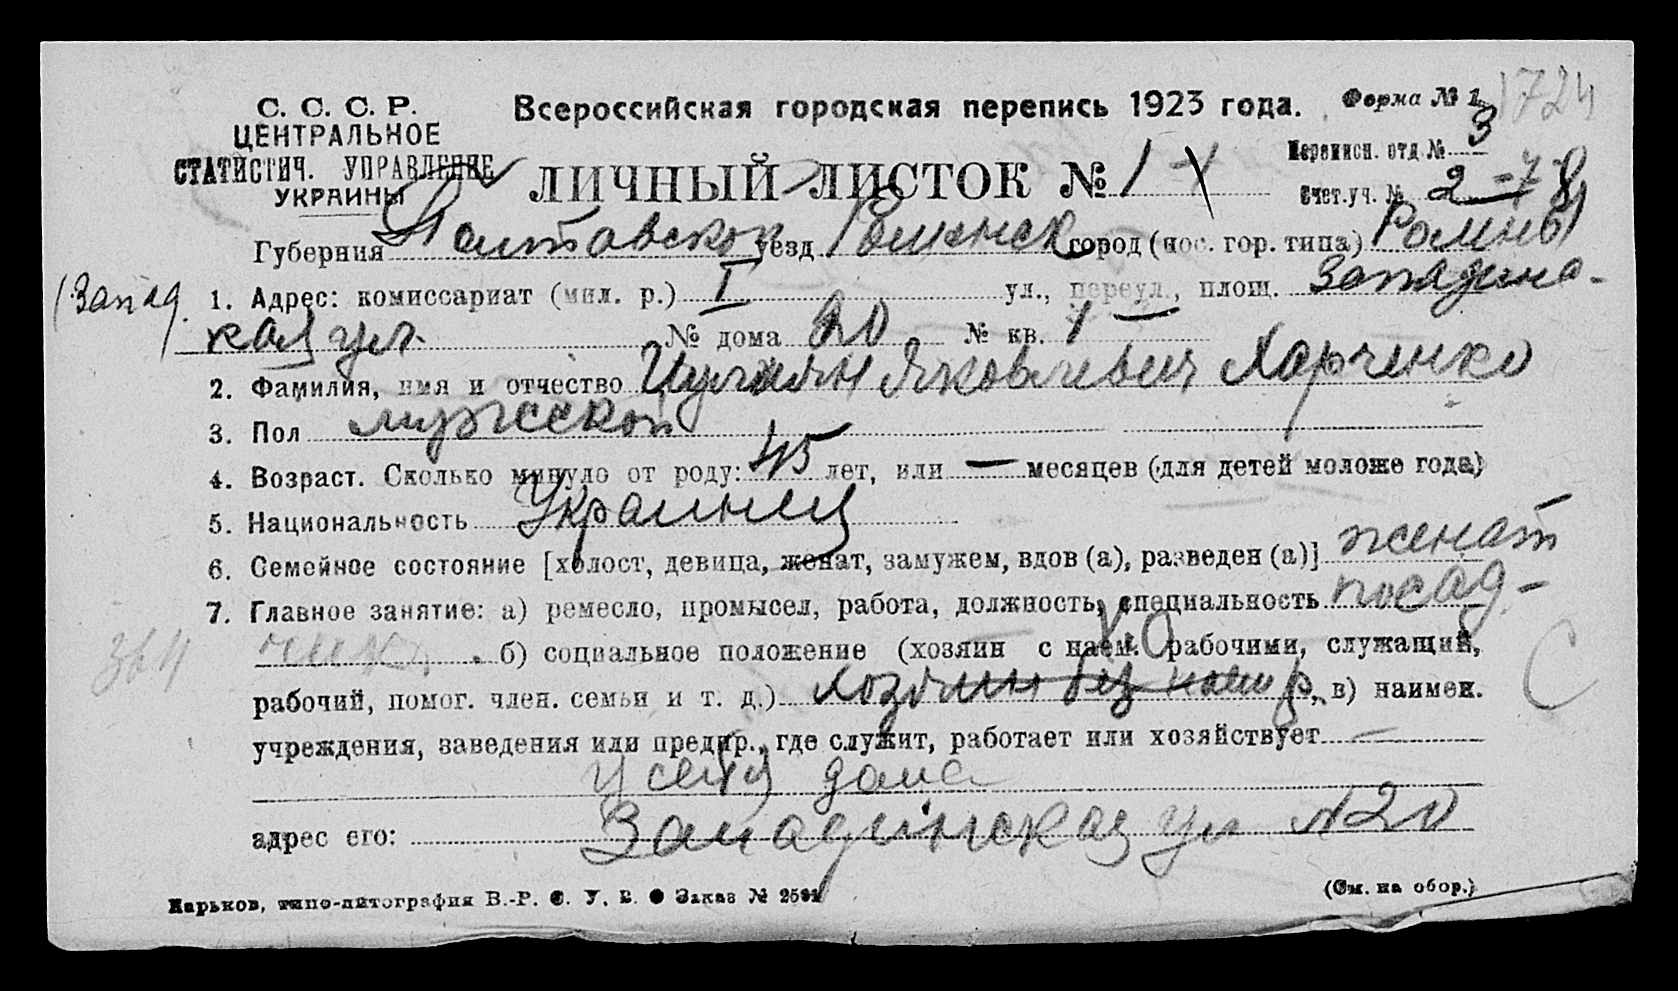 С. С. С. Р.
ЦЕНТРАЛЬНОЕ
СТАТИСТИЧ. УПРАВЛЕНИЕ
УКРАИНЫ
Всероссийская городская перепись 1923 года.
Форма № 1.
1724
ЛИЧНЫЙ ЛИСТОК № 1
Переписн. отд. № 3
Счет. уч. № 2
Губерния Полтавской уезд Роменск город (пос. гор. типа) Ромны
(Запад. 1. Адрес: комиссариат (мил. р.) I ул., переул., площ. Западинс-
кая ул. № дома 20 № кв. 1
2. Фамилия, имя и отчество Яковлевич Харченко
3. Пол мужской
4. Возраст. Сколько минуло от роду: 45 лет, или — месяцев (для детей моложе года)
5. Национальность Украинец
6. Семейное состояние [холост, девица, женат, замужем, вдов (а), разведен (а)] женат
7. Главное занятие: а) ремесло, промысел, работа, должность, специальность посад-
чик. б) социальное положение (хозяин с наем. рабочими, служащий,
364
рабочий, помог. член. семьи и т. д.) хозяин без наем р., в) наимен.
С
учреждения, заведения или предпр., где служит, работает или хозяйствует —
у себя дома
адрес его: Западинская ул №20
Харьков, типо-литография В.-Р. С. У. В. Заказ № 2591
(См. на обор.)